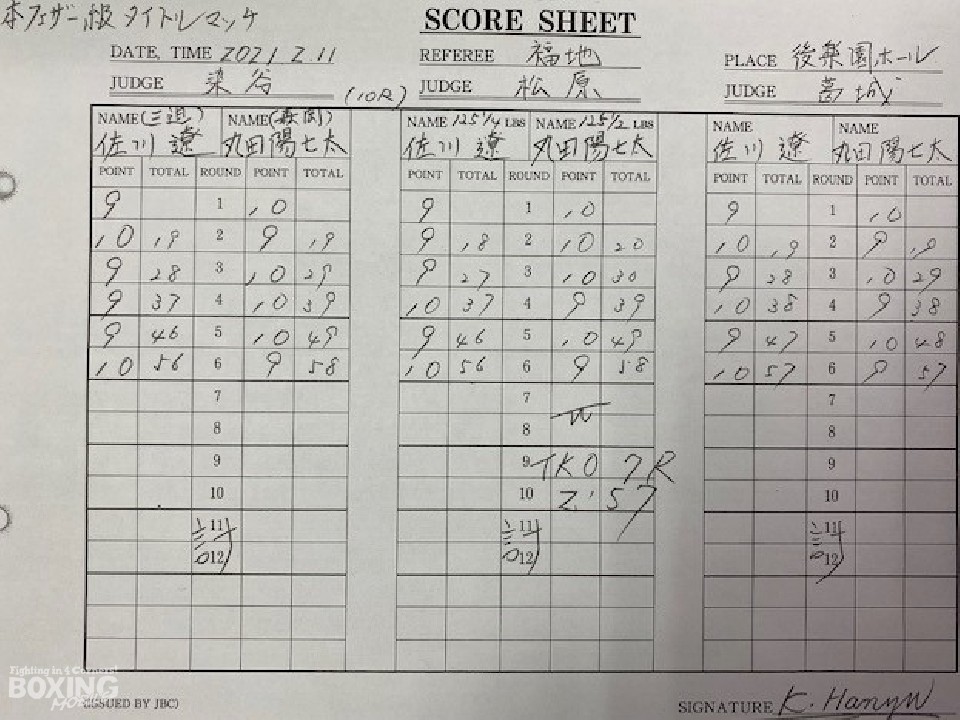 本フェザー級 タイトルマッチ
SCORE SHEET
DATE, TIME 2021 2.11 REFEREE 福地 PLACE 後楽園ホール
JUDGE 染谷 (10R) JUDGE 松原 JUDGE 葛城
NAME (三迫) NAME NAME 125 1/4 LBS NAME 125 1/2 LBS NAME NAME
佐川 遼 丸田陽七太 佐川 遼 丸田陽七太 佐川 遼 丸田陽七太
POINT TOTAL ROUND POINT TOTAL POINT TOTAL ROUND POINT TOTAL POINT TOTAL ROUND POINT TOTAL
9 1 10 9 1 10 9 1 10
10 19 2 9 19 9 18 2 10 20 10 19 2 9 19
9 28 3 10 29 9 27 3 10 30 9 28 3 10 29
9 37 4 10 39 10 37 4 9 39 10 38 4 9 38
9 46 5 10 49 9 46 5 10 49 9 47 5 10 48
10 56 6 9 58 10 56 6 9 58 10 57 6 9 57
7 7 7
8 8 W 8
9 9 TKO 7R 9
10 10 2'57 10
計 11 計 11 計 11
12 12 12
Fighting in 4 Corners!
BOXING
MOBILE
(ISSUED BY JBC)
SIGNATURE K. Hanyu